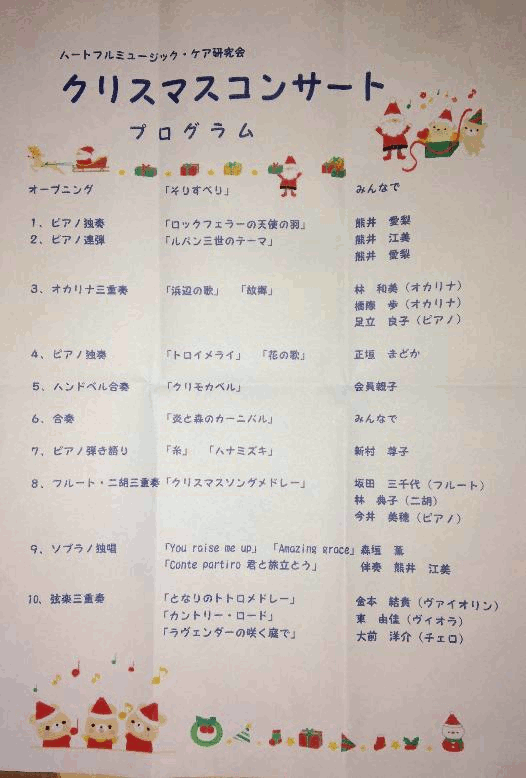 ハートフルミュージック・ケア研究会
クリスマスコンサート
プログラム
オープニング 「そりすべり」 みんなで
1、ピアノ独奏 「ロックフェラーの天使の羽」 熊井 愛梨
2、ピアノ連弾 「ルパン三世のテーマ」 熊井 江美
熊井 愛梨
3、オカリナ三重奏 「浜辺の歌」 「故郷」 林 和美（オカリナ）
橋際 歩（オカリナ）
足立 良子（ピアノ）
4、ピアノ独奏 「トロイメライ」 「花の歌」 正垣 まどか
5、ハンドベル合奏 「ウリモカベル」 会員親子
6、合奏 「炎と森のカーニバル」 みんなで
7、ピアノ弾き語り 「糸」 「ハナミズキ」 新村 尊子
8、フルート・二胡三重奏 「クリスマスソングメドレー」 坂田 三千代（フルート）
林 典子（二胡）
今井 美穂（ピアノ）
9、ソプラノ独唱 「You raise me up」 「Amazing grace」 森垣 薫
「Conte partiro 君と旅立とう」 伴奏 熊井 江美
10、弦楽三重奏 「となりのトトロメドレー」 金本 結貴（ヴァイオリン）
「カントリー・ロード」 東 由佳（ヴィオラ）
「ラヴェンダーの咲く庭で」 大前 洋介（チェロ）